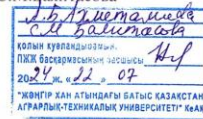 А.Б.Ахметалиева
С.М.Бапитасова
қолын куәландырамын.
ПЖЖ басқармасының басшысы
20 24 ж. « 22 » 07
"ЖӘҢГІР ХАН АТЫНДАҒЫ БАТЫС ҚАЗАҚСТАН
АГРАРЛЫҚ-ТЕХНИКАЛЫҚ УНИВЕРСИТЕТІ" КеАҚ